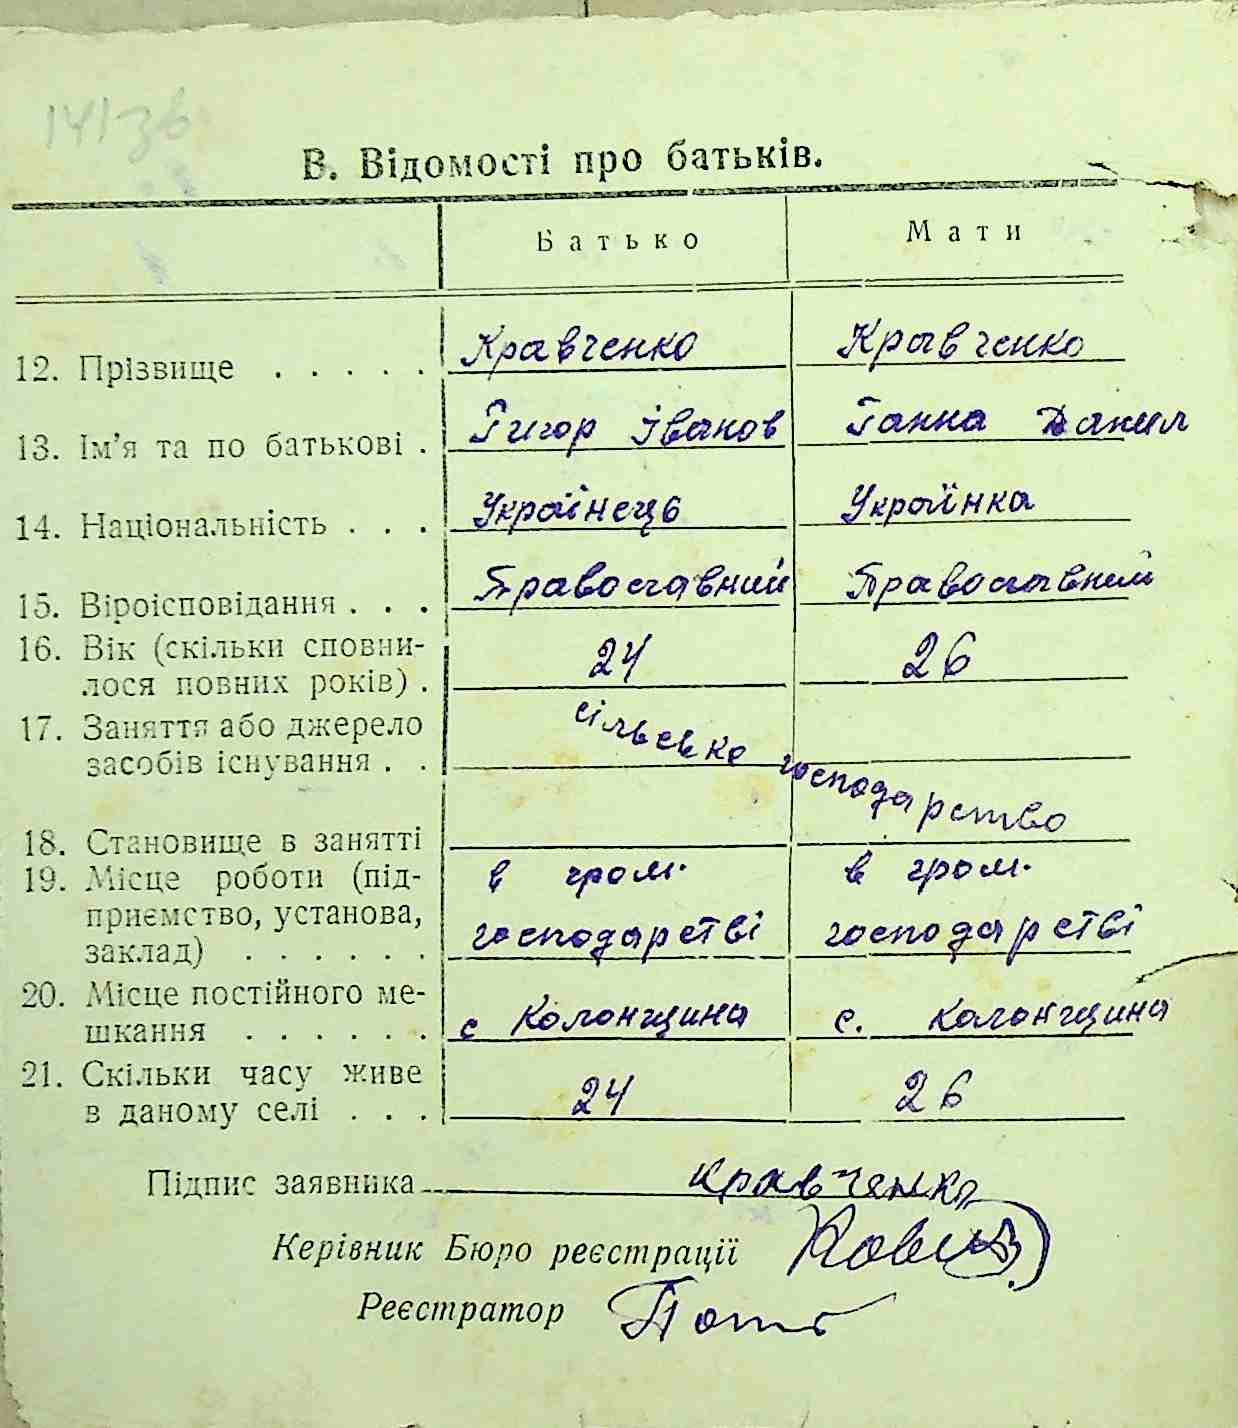 141зв
В. Відомості про батьків.
Батько Мати
12. Прізвище . . . . . Кравченко Кравченко
13. Ім'я та по батькові . Григор Іванов Ганна Данил
14. Національність . . . Українець Українка
15. Віроісповідання . . . Православний Православний
16. Вік (скільки сповни-
лося повних років) . 24 26
17. Заняття або джерело
засобів існування . . сільсько господарство
18. Становище в занятті
19. Місце роботи (під- в гром. в гром.
приємство, установа, господарстві господарстві
заклад) . . . . . .
20. Місце постійного ме-
шкання . . . . . . с Колонщина с. Колонщина
21. Скільки часу живе
в даному селі . . . 24 26
Підпис заявника Кравченко
Керівник Бюро реєстрації
Реєстратор